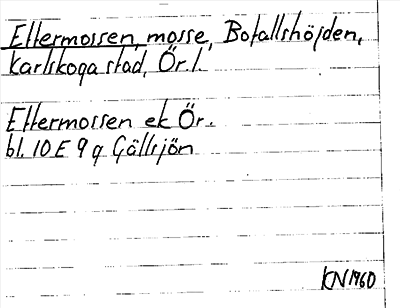 Ettermossen, mosse, Bofallshöjden,
Karlskoga stad, Ör. l.
Ettermossen ek Ör.
bl. 10E 9g Gällsjön
KN 1960